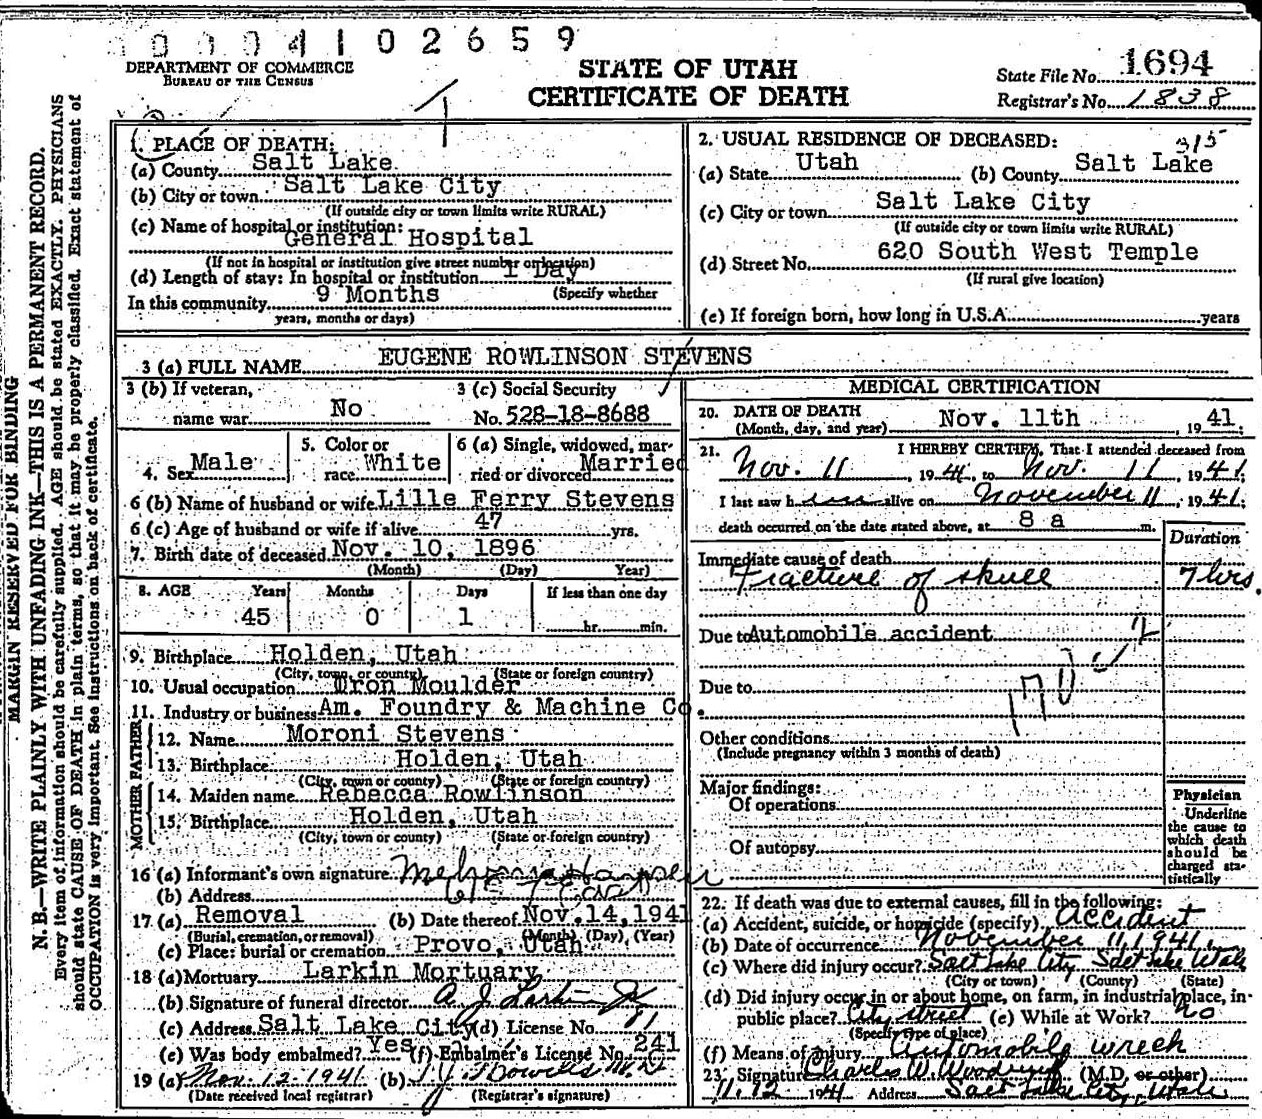 0004102659
DEPARTMENT OF COMMERCE
BUREAU OF THE CENSUS
STATE OF UTAH
CERTIFICATE OF DEATH
State File No. 1694
Registrar's No. 1838
MARGIN RESERVED FOR BINDING
N. B.—WRITE PLAINLY WITH UNFADING INK—THIS IS A PERMANENT RECORD.
Every item of information should be carefully supplied. AGE should be stated EXACTLY. PHYSICIANS
should state CAUSE OF DEATH in plain terms, so that it may be properly classified. Exact statement of
OCCUPATION is very important. See instructions on back of certificate.
1. PLACE OF DEATH:
(a) County Salt Lake
(b) City or town Salt Lake City
(If outside city or town limits write RURAL)
(c) Name of hospital or institution:
General Hospital
(If not in hospital or institution give street number or location)
(d) Length of stay: In hospital or institution 1 Day
In this community 9 Months (Specify whether
years, months or days)
2. USUAL RESIDENCE OF DECEASED: 315
(a) State Utah (b) County Salt Lake
(c) City or town Salt Lake City
(If outside city or town limits write RURAL)
(d) Street No. 620 South West Temple
(If rural give location)
(e) If foreign born, how long in U.S.A. years
3 (a) FULL NAME EUGENE ROWLINSON STEVENS
3 (b) If veteran,
name war No
3 (c) Social Security
No. 528-18-8688
4. Sex Male
5. Color or
race White
6 (a) Single, widowed, mar-
ried or divorced Married
6 (b) Name of husband or wife Lille Ferry Stevens
6 (c) Age of husband or wife if alive 47 yrs.
7. Birth date of deceased Nov. 10, 1896
(Month) (Day) Year)
8. AGE Years Months Days If less than one day
45 0 1 hr. min.
9. Birthplace Holden, Utah
(City, town, or county) (State or foreign country)
10. Usual occupation Iron Moulder
11. Industry or business Am. Foundry & Machine Co.
FATHER
12. Name Moroni Stevens
13. Birthplace Holden, Utah
(City, town or county) (State or foreign country)
MOTHER
14. Maiden name Rebecca Rowlinson
15. Birthplace Holden, Utah
(City, town or county) (State or foreign country)
16 (a) Informant's own signature
(b) Address
17 (a) Removal (b) Date thereof Nov.14,1941
(Burial, cremation, or removal) (Month) (Day), (Year)
(c) Place: burial or cremation Provo, Utah
18 (a) Mortuary Larkin Mortuary
(b) Signature of funeral director A J Larkin Jr
(c) Address Salt Lake City (d) License No. 81
(e) Was body embalmed? Yes (f) Embalmer's License No. 241
19 (a) Nov. 12. 1941 (b)
(Date received local registrar) (Registrar's signature)
MEDICAL CERTIFICATION
20. DATE OF DEATH Nov. 11th, 1941;
(Month, day, and year)
21. I HEREBY CERTIFY, That I attended deceased from
Nov. 11, 1941, to Nov. 11, 1941
I last saw him alive on November 11, 1941;
death occurred on the date stated above, at 8 a m.
Duration
Immediate cause of death
Fracture of skull 7 hrs.
Due to Automobile accident
Due to
Other conditions
(Include pregnancy within 3 months of death)
Major findings:
Of operations
Of autopsy
Physician
Underline
the cause to
which death
should be
charged sta-
tistically
22. If death was due to external causes, fill in the following:
(a) Accident, suicide, or homicide (specify) Accident
(b) Date of occurrence November 11, 1941
(c) Where did injury occur? Salt Lake City Salt Lake Utah
(City or town) (County) (State)
(d) Did injury occur in or about home, on farm, in industrial place, in-
public place? City street (e) While at Work? No
(Specify type of place)
(f) Means of injury Automobile wreck
23. Signature Charles W. Woodruff (M.D. or other)
11.12 1941 Address Salt Lake City, Utah